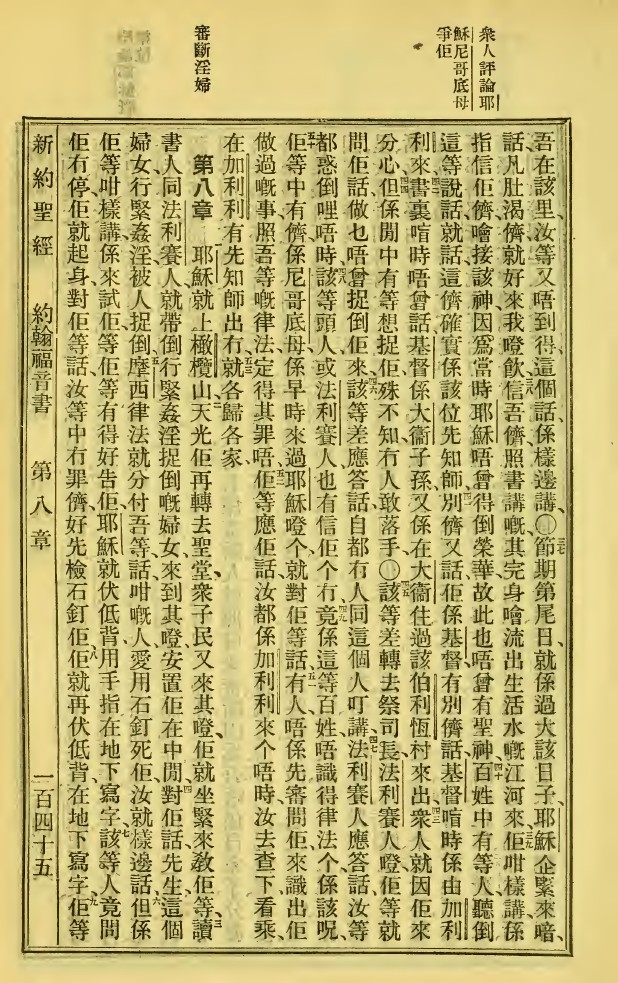 衆人評論耶
穌尼哥底母
爭佢
審斷淫婦
吾在該里汝等又唔到得這個話係樣邊講〇節期第尾日就係過大該日子耶穌企緊來喑
話凡肚渴儕就好來我嶝飮信吾儕照書講嘅其完身噲流出生活水嘅江河來佢咁樣講係
指信佢儕噲接該神因爲當時耶穌唔曾得倒榮華故此也唔曾有聖神百姓中有等人聽倒
這等說話就話這儕確實係該位先知師別儕又話佢係基督有別儕話基督喑時係由加利
利來書裏喑時唔曾話基督係大衞子孫又係在大衞住過該伯利恆村來出衆人就因佢來
分心但係閒中有等想捉佢殊不知冇人敢落手〇該等差轉去祭司長法利賽人嶝佢等就
問佢話做乜唔曾捉倒佢來該等差應答話自都冇人同這個人叮講法利賽人應答話汝等
都惑倒哩唔時該等頭人或法利賽人也有信佢个冇竟係這等百姓唔識得律法个係該呪
佢等中有儕係尼哥底母係早時來過耶穌嶝个就對佢等話有人唔係先審問佢來識出佢
做過嘅事照吾等嘅律法定得其罪唔佢等應佢話汝都係加利利來个唔時汝去查下看乘
在加利利有先知師出冇就各歸各家
第八章 耶穌就上橄欖山天光佢再轉去聖堂衆子民又來其嶝佢就坐緊來敎佢等讀
書人同法利賽人就帶倒行緊姦淫捉倒嘅婦女來到其嶝安置佢在中間對佢話先生這個
婦女行緊姦淫被人捉倒摩西律法就分付吾等話咁嘅人愛用石釘死佢汝就樣邊話但係
佢等咁樣講係來試佢等佢等有得好告佢耶穌就伏低背用手指在地下寫字該等人竟問
佢有停佢就起身對佢等話汝等中冇罪儕好先檢石釘佢佢就再伏低背在地下寫字佢等
新約聖經 約翰福音書 第八章 一百四十五